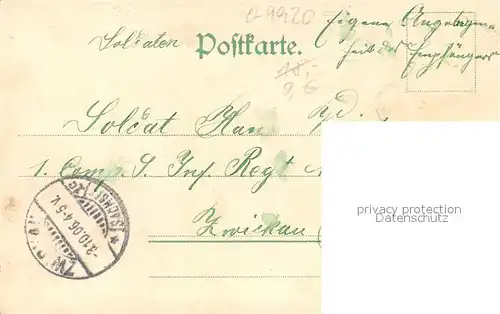 a 9920
Eigene Angelegen-
Soldaten Postkarte. heit des Empfängers
18,-
9,6
Soldat Han
1. Comp. 5. Inf. Regt
Zwickau (
ZWICKAU (SACHSEN)
-2.10.06.4-5V.
privacy protection